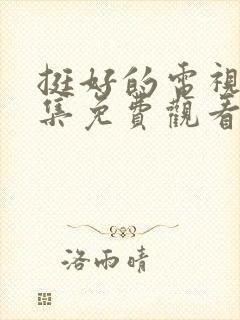 挺好的電視
集免費觀看
洛雨晴